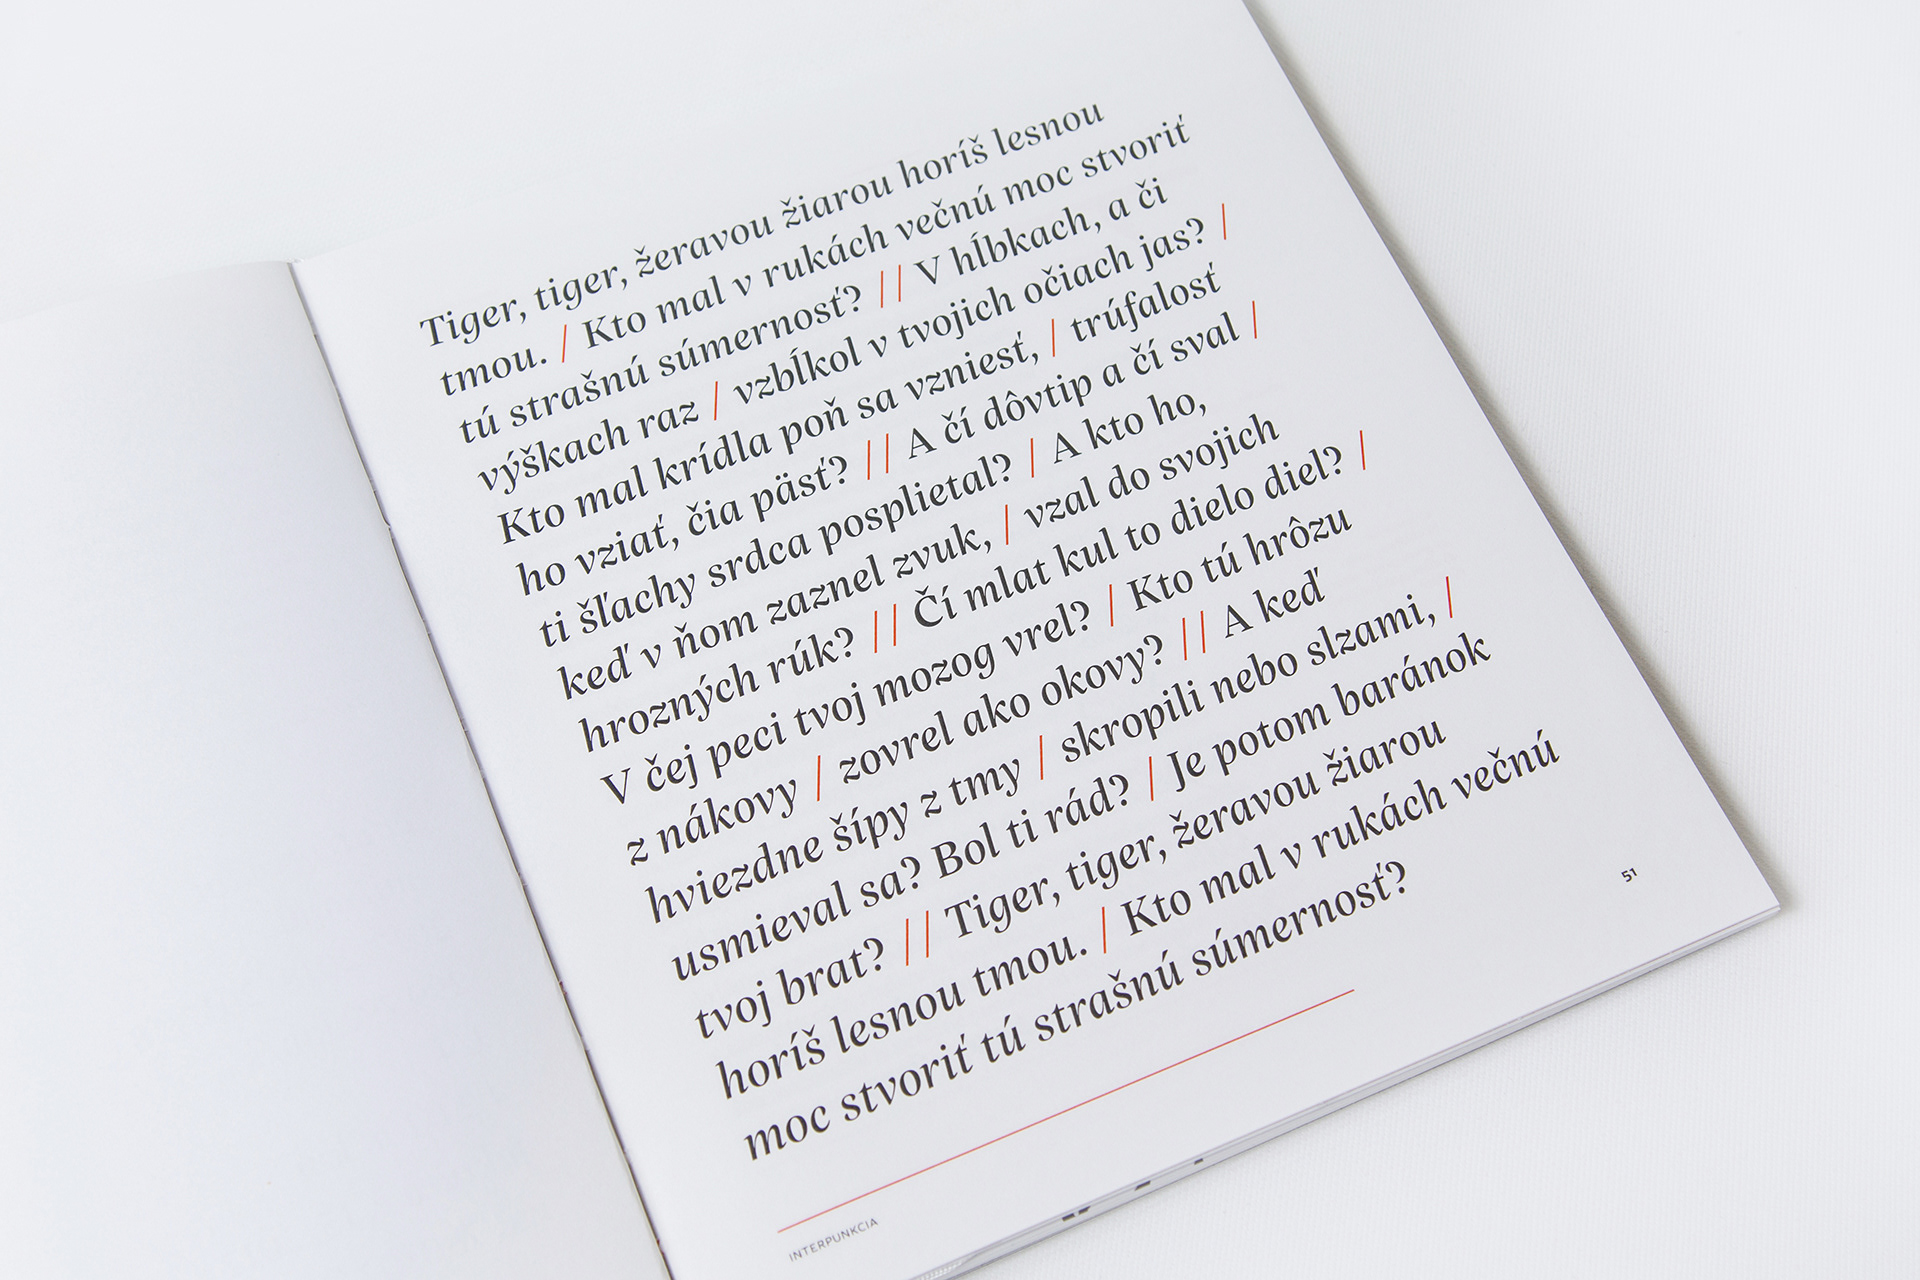 Tiger, tiger, žeravou žiarou horíš lesnou
tmou. / Kto mal v rukách večnú moc stvoriť
tú strašnú súmernosť? // V hĺbkach, a či
výškach raz / vzbĺkol v tvojich očiach jas? /
Kto mal krídla poň sa vzniesť, / trúfalosť
ho vziať, čia päsť? // A čí dôvtip a čí sval /
ti šľachy srdca posplietal? / A kto ho,
keď v ňom zaznel zvuk, / vzal do svojich
hrozných rúk? // Čí mlat kul to dielo diel? /
V čej peci tvoj mozog vrel? / Kto tú hrôzu
z nákovy / zovrel ako okovy? // A keď
hviezdne šípy z tmy / skropili nebo slzami, /
usmieval sa? Bol ti rád? / Je potom baránok
tvoj brat? // Tiger, tiger, žeravou žiarou
horíš lesnou tmou. / Kto mal v rukách večnú
moc stvoriť tú strašnú súmernosť?
INTERPUNKCIA
51